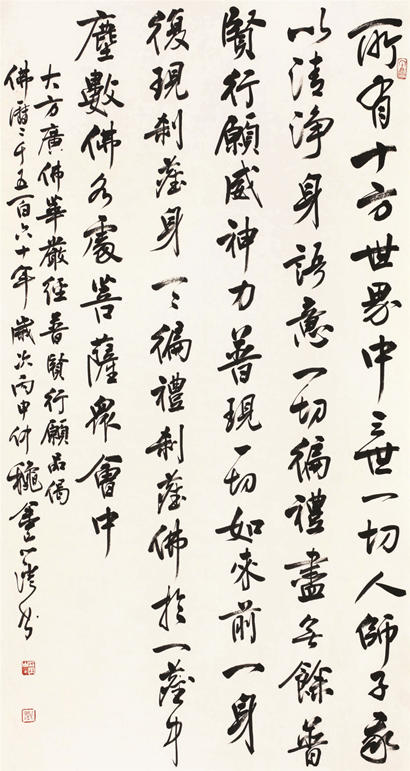 所有十方世界中三世一切人師子我
以清淨身語意一切徧禮盡無餘普
賢行願威神力普現一切如來前一身
復現剎薩身一一徧禮剎薩佛於一薩中
塵數佛各處菩薩眾會中
大方廣佛華嚴經普賢行願品偈
佛曆二千五百六十年歲次丙申仲穐